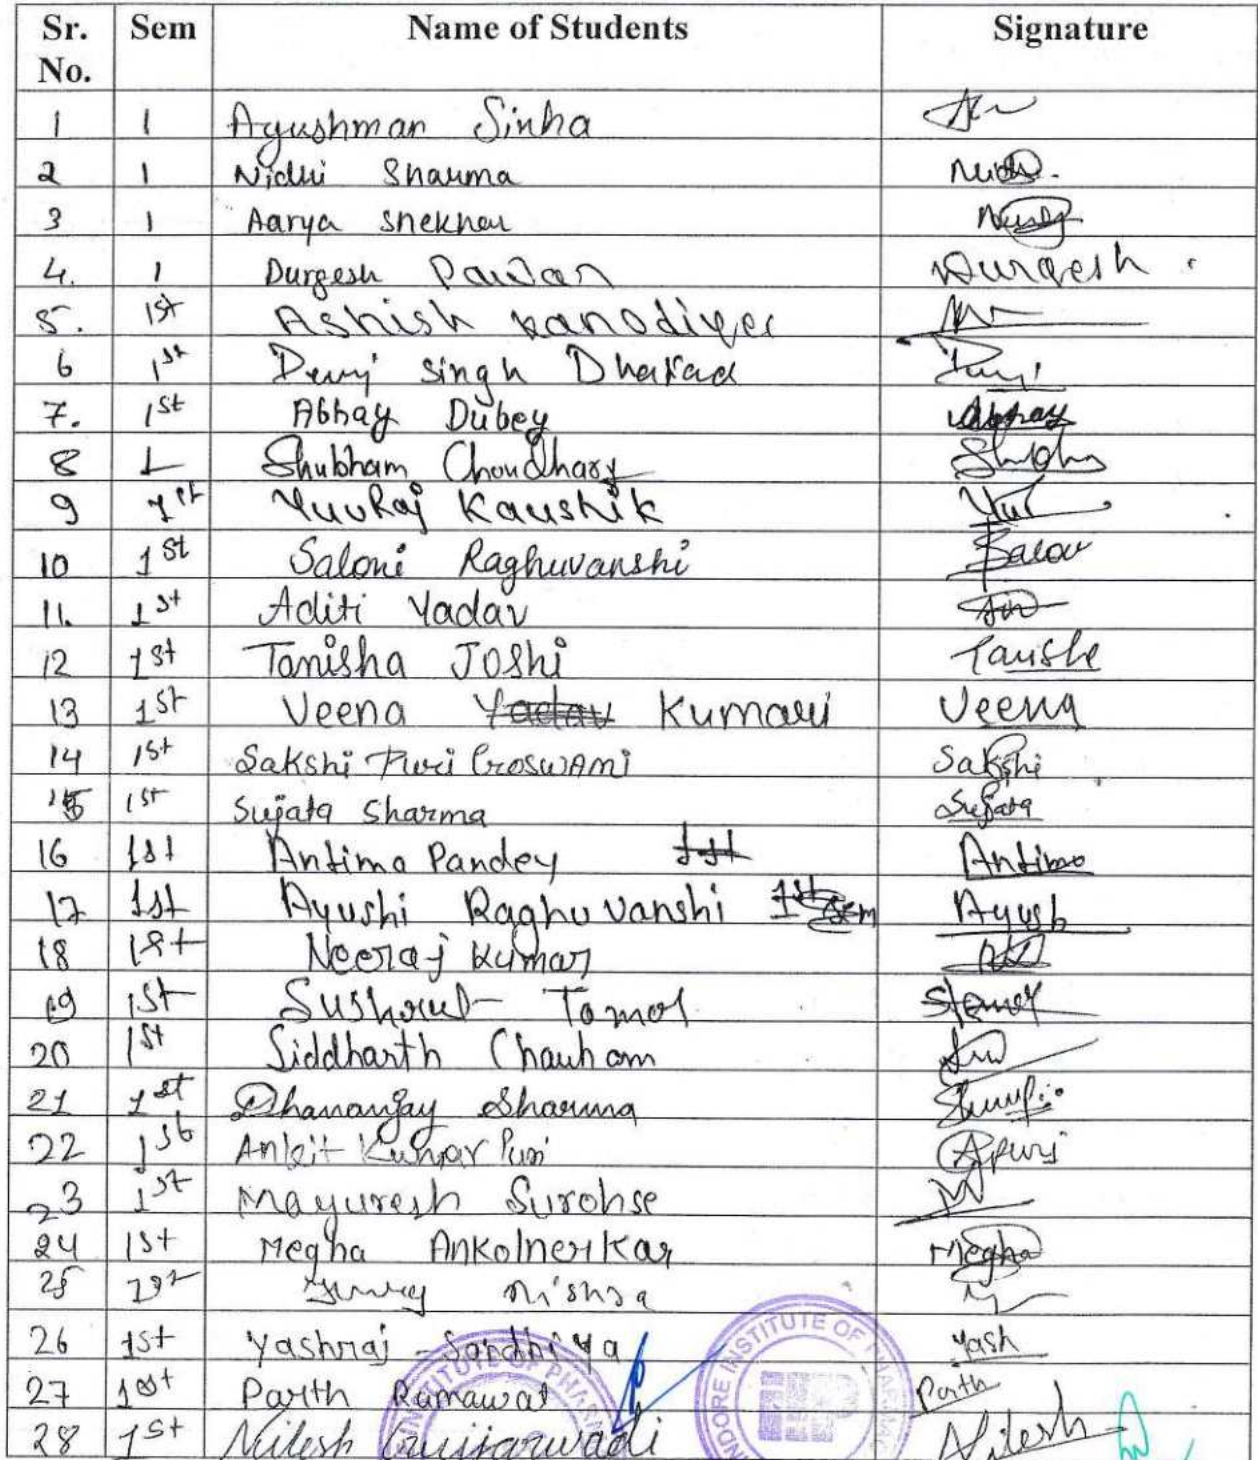 Sr. No. Sem Name of Students Signature
1 1 Ayushman Sinha
2 1 Nidhi Sharma
3 1 Aarya Shekhar
4. 1 Durgesh Pawar Durgesh
5. 1st Ashish
6 1st singh Dhakad
7. 1st Abhay Dubey Abhay
8 1 Shubham Choudhary Shubham
9 1st YuvRaj Kaushik Yuv
10 1st Saloni Raghuvanshi
11. 1st Aditi Yadav
12 1st Tanisha Joshi
13 1st Veena Yadav Kumari Veena
14 1st Sakshi Puri GosWAMi Sakshi
15 1st Sujata Sharma Sujata
16 1st Antima Pandey 1st Antima
17 1st Ayushi Raghuvanshi 1st Sem Ayush
18 1st Neeraj Kumar
19 1st Tomar Stomar
20 1st Siddharth Chauham
21 1st Dhananjay Sharma
22 1st Ankit Kumar Puri Apuri
23 1st Mayuresh Surohse
24 1st Megha Ankolnerkar Megha
25 1st Mishra
26 1st Yashraj Sondhiya Yash
27 1st Parth Ramawat Parth
28 1st Nilesh Nilesh
INSTITUTE OF PHARMA
INDORE INSTITUTE OF PHARMAC